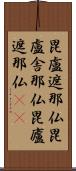 毘盧遮那仏毘
盧舎那仏毘廬
遮那仏